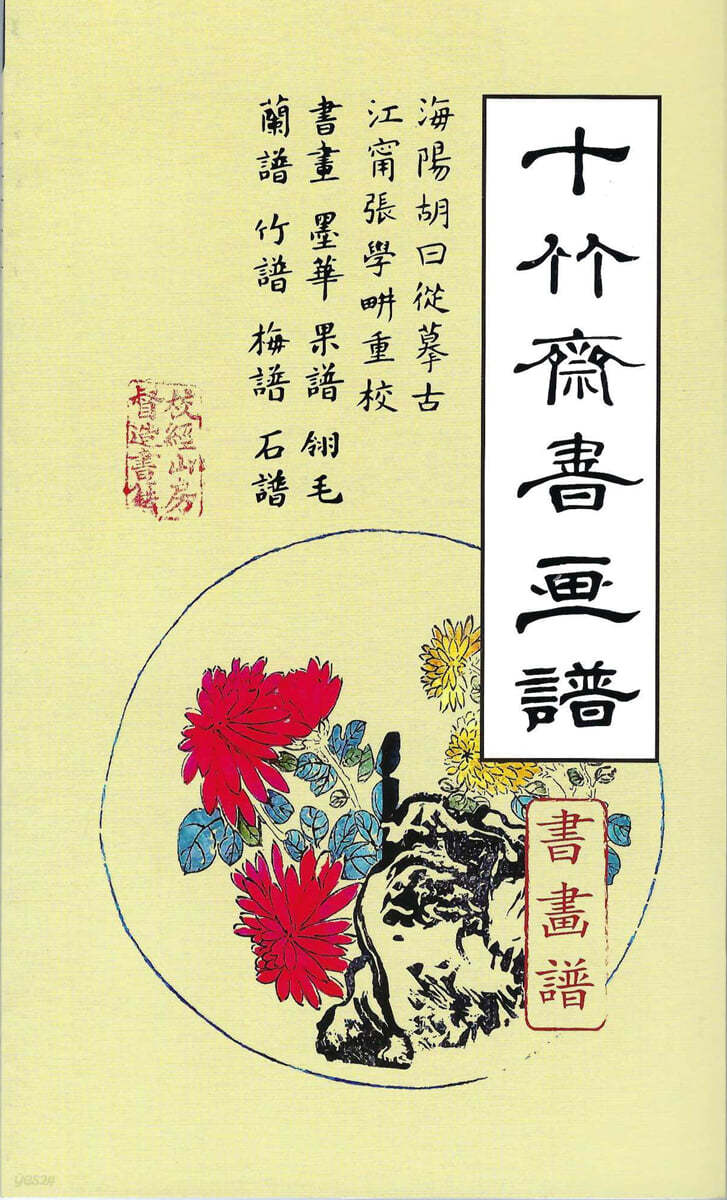 十竹齋書画譜
海陽胡曰從摹古
江甯張學畊重校
書畫 墨華 果譜 翎毛
蘭譜 竹譜 梅譜 石譜
校經山房
督造書籍
書畫譜
yes24